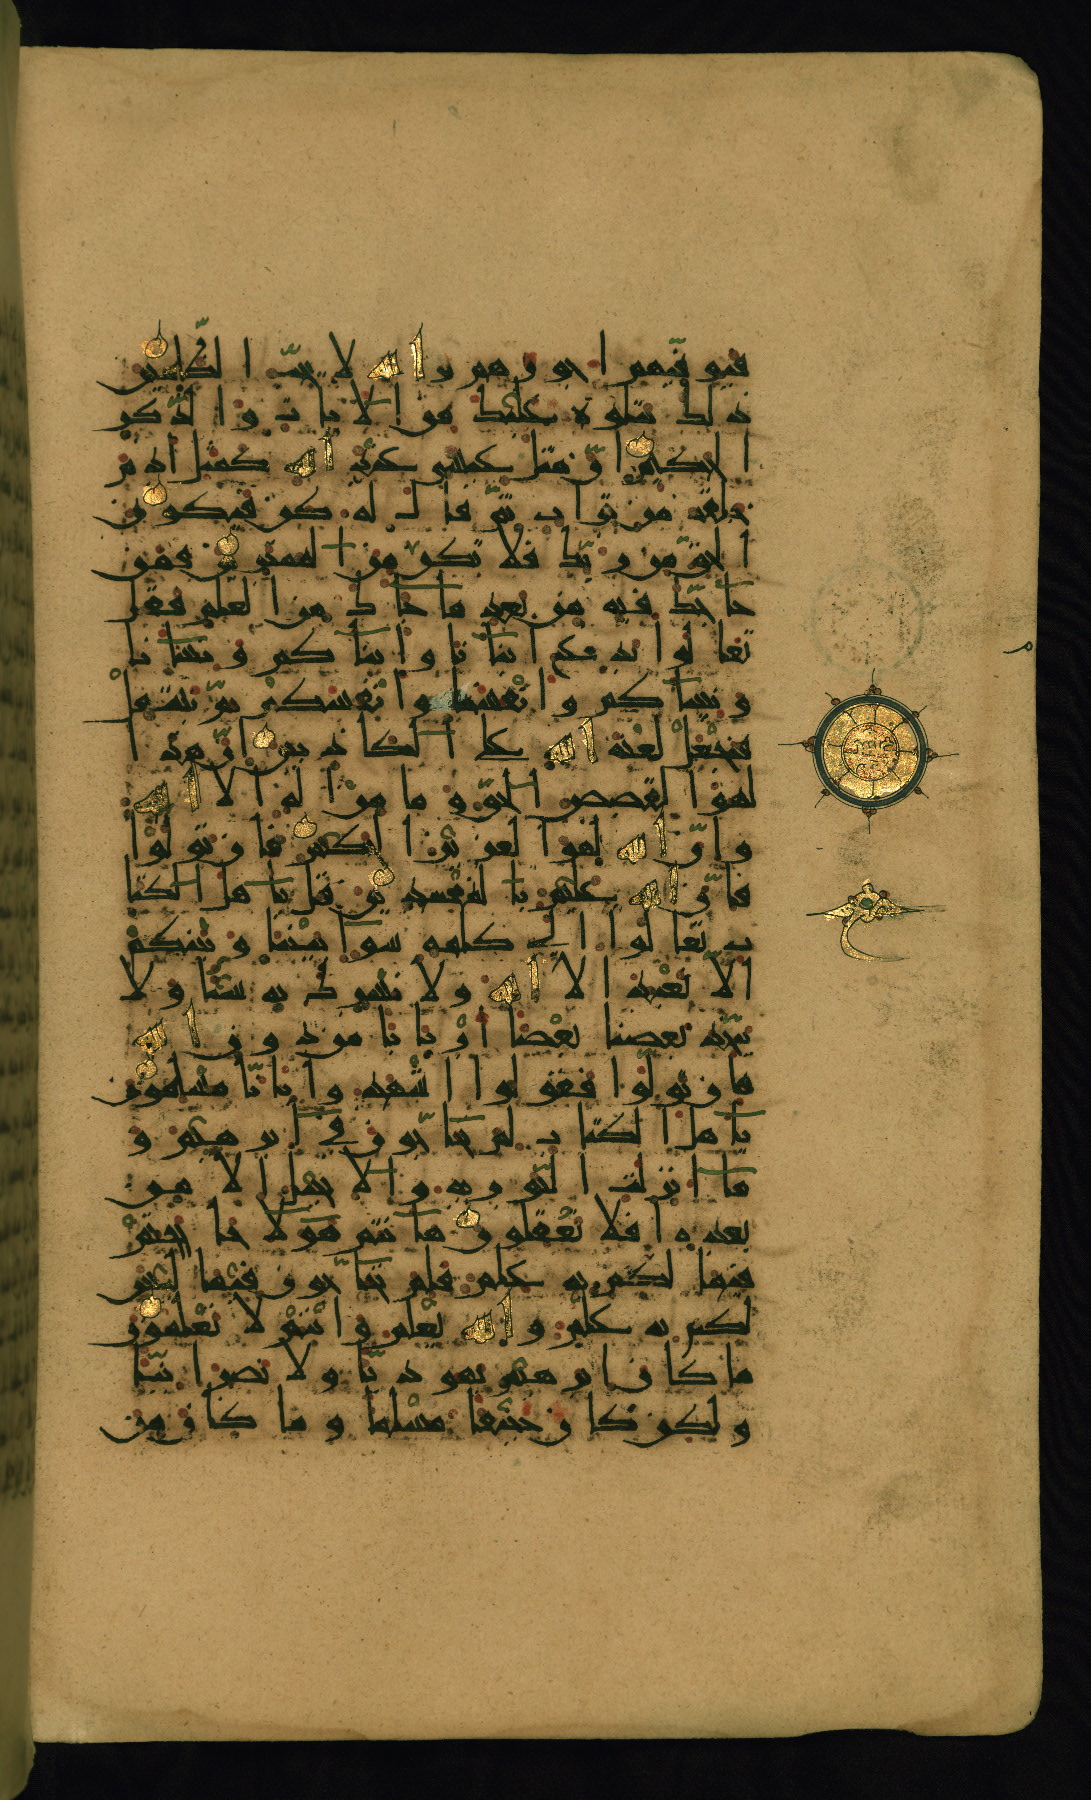 فيوفيهم اجورهم والله لا يحب الظلمين
ذلك نتلوه عليك من الايات والذكر
الحكيم ان مثل عيسى عند الله كمثل ادم
خلقه من تراب ثم قال له كن فيكون
الحق من ربك فلا تكن من الممترين فمن
حاجك فيه من بعد ما جاك من العلم فقل
تعالوا ندع ابنانا وابناكم ونسانا
ونساكم وانفسنا وانفسكم ثم نبتهل
فنجعل لعنة الله على الكاذبين ان هذا
لهو القصص الحق وما من اله الا الله
وان الله لهو العزيز الحكيم فان تولوا
فان الله عليم بالمفسدين قل ياهل الكتا
ب تعالوا الى كلمة سوا بيننا وبينكم
الا نعبد الا الله ولا نشرك به شيا ولا
يتخذ بعضنا بعضا اربابا من دون الله
فان تولوا فقولوا اشهدوا بانا مسلمون
ياهل الكتاب لم تحاجون في ابرهيم و
ما انزلت التورية والانجيل الا من
بعده افلا تعقلون هانتم هولا حاججتم
فيما لكم به علم فلم تحاجون فيما ليس
لكم به علم والله يعلم وانتم لا تعلمون
ما كان ابرهيم يهوديا ولا نصرانيا
ولكن كان حنيفا مسلما وما كان من